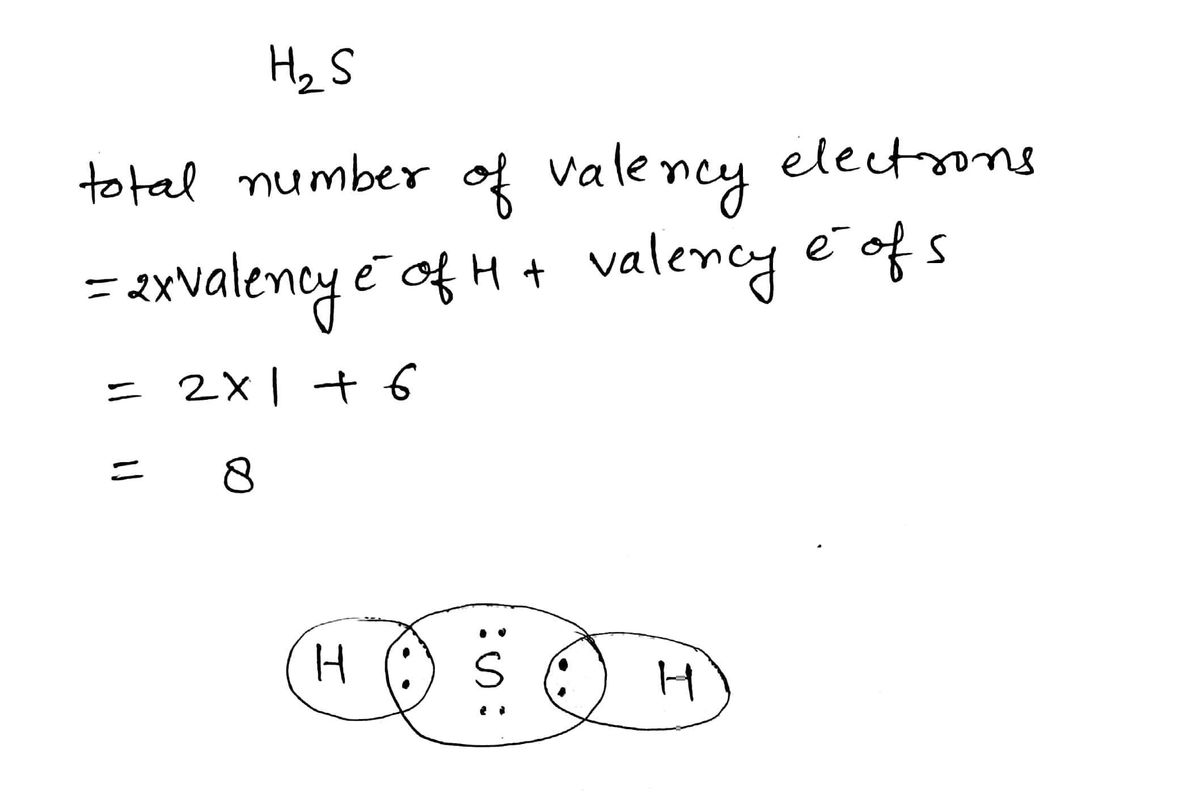 H₂S
total number of valency electrons
= 2xvalency e⁻ of H + valency e⁻ of s
= 2×1 + 6
= 8
H : S : H